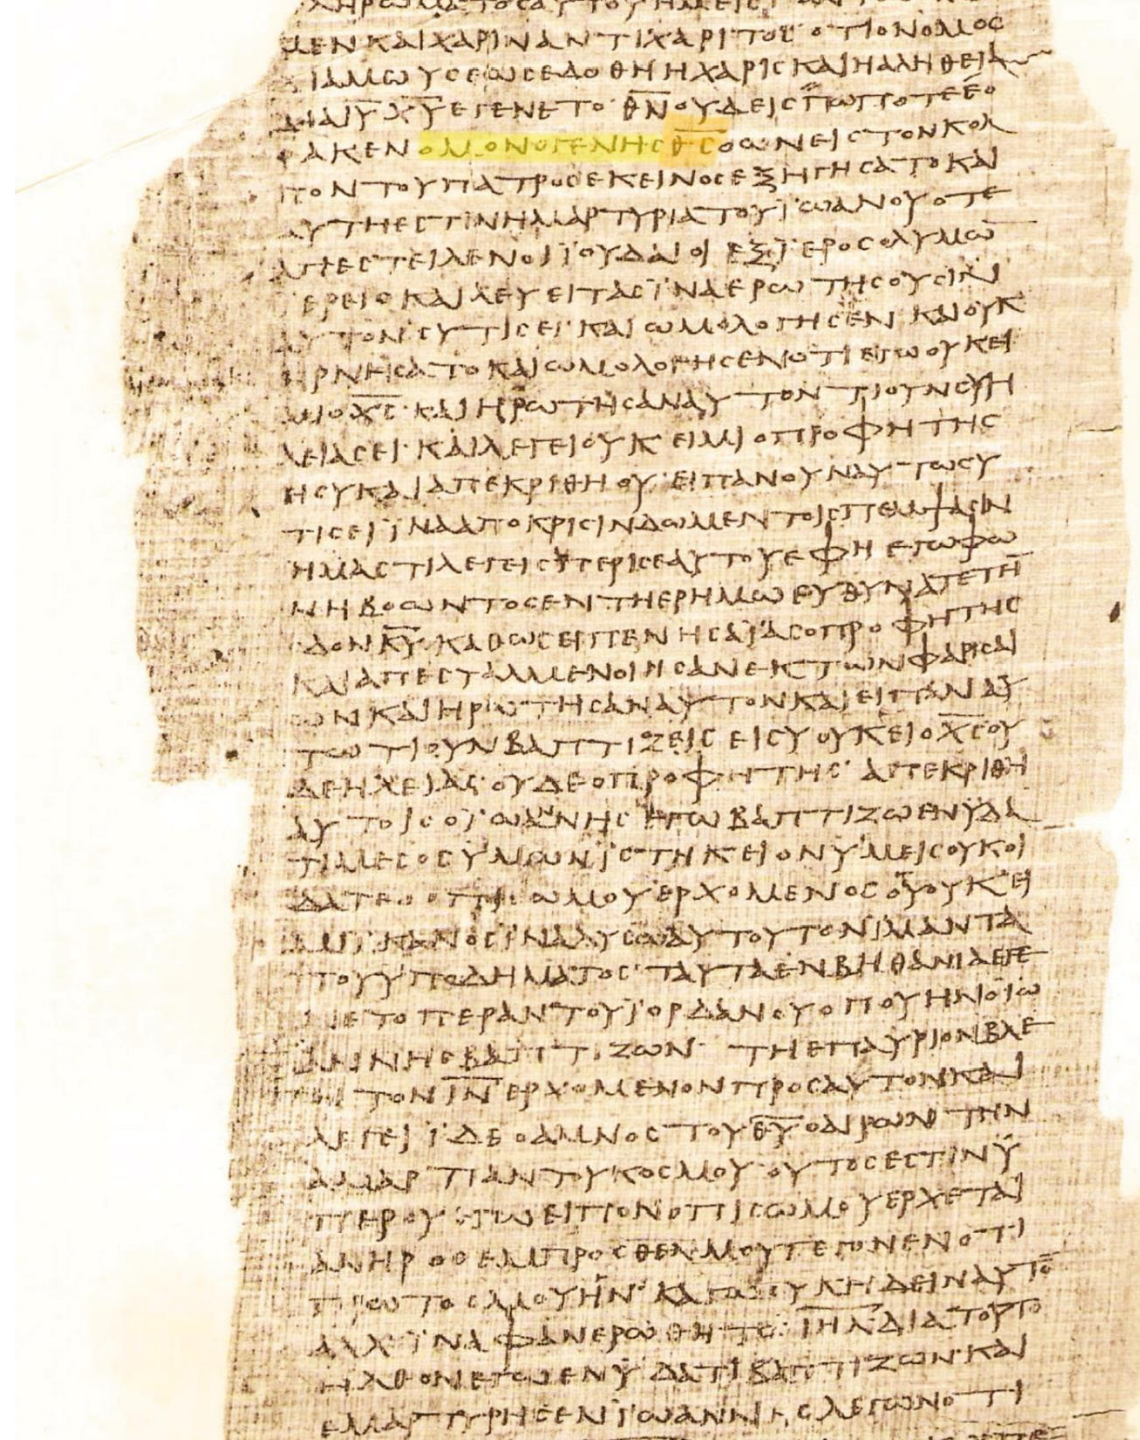 ΛΗΡΩΜΑΤΟΣΑΥΤΟΥΗΜΕΙΣ
ΜΕΝΚΑΙΧΑΡΙΝΑΝΤΙΧΑΡΙΤΟΣ ΟΤΙΟΝΟΜΟΣ
ΙΑΜΩΥΣΕΩΣΕΔΟΘΗΗΧΑΡΙΣΚΑΙΗΑΛΗΘΕΙΑ
ΔΙΑΙ̅Υ̅Χ̅Υ̅ΕΓΕΝΕΤΟ·Θ̅Ν̅ΟΥΔΕΙΣΠΩΠΟΤΕΕΟ
ΡΑΚΕΝΟΜΟΝΟΓΕΝΗΣΘ̅Σ̅ΟΩΝΕΙΣΤΟΝΚΟΛ
ΠΟΝΤΟΥΠΑΤΡΟΣΕΚΕΙΝΟΣΕΞΗΓΗΣΑΤΟΚΑΙ
ΑΥΤΗΕΣΤΙΝΗΜΑΡΤΥΡΙΑΤΟΥΪΩΑΝΟΥΟΤΕ
ΑΠΕΣΤΕΙΛΕΝΟΙΪΟΥΔΑΙΟΙΕΞΪΕΡΟΣΟΛΥΜΩ̅
ΪΕΡΕΙΣΚΑΙΛΕΥΕΙΤΑΣΪΝΑΕΡΩΤΗΣΟΥΣΙΝ
ΑΥΤΟΝΣΥΤΙΣΕΙ·ΚΑΙΩΜΟΛΟΓΗΣΕΝΚΑΙΟΥΚ
ΗΡΝΗΣΑΤΟΚΑΙΩΜΟΛΟΓΗΣΕΝΟΤΙΕΓΩΟΥΚΕΙ
ΜΙΟΧ̅Σ̅·ΚΑΙΗΡΩΤΗΣΑΝΑΥΤΟΝΤΙΟΥΝΣΥΗ
ΛΕΙΑΣΕΙ·ΚΑΙΛΕΓΕΙΟΥΚΕΙΜΙΟΠΡΟΦΗΤΗΣ
ΕΙΣΥΚΑΙΑΠΕΚΡΙΘΗΟΥ·ΕΙΠΑΝΟΥΝΑΥΤΩΣΥ
ΤΙΣΕΙΪΝΑΑΠΟΚΡΙΣΙΝΔΩΜΕΝΤΟΙΣΠΕΜΨΑΣΙΝ
ΗΜΑΣΤΙΛΕΓΕΙΣΠΕΡΙΣΕΑΥΤΟΥΕΦΗΕΓΩΦΩ
ΝΗΒΟΩΝΤΟΣΕΝΤΗΕΡΗΜΩΕΥΘΥΝΑΤΕΤΗ̅
ΟΔΟΝΚ̅Υ̅·ΚΑΘΩΣΕΙΠΕΝΗΣΑΪΑΣΟΠΡΟΦΗΤΗΣ
ΚΑΙΑΠΕΣΤΑΛΜΕΝΟΙΗΣΑΝΕΚΤΩΝΦΑΡΙΣΑΙ
ΩΝΚΑΙΗΡΩΤΗΣΑΝΑΥΤΟΝΚΑΙΕΙΠΑΝΑΥ
ΤΩΤΙΟΥΝΒΑΠΤΙΖΕΙΣΕΙΣΥΟΥΚΕΙΟΧ̅Σ̅ΟΥ
ΔΕΗΛΕΙΑΣ·ΟΥΔΕΟΠΡΟΦΗΤΗΣ·ΑΠΕΚΡΙΘΗ
ΑΥΤΟΙΣΟΪΩΑΝΗΣΕΓΩΒΑΠΤΙΖΩΕΝΫΔΑ
ΤΙΜΕΣΟΣΥΜΩΝΕΣΤΗΚΕΙΟΝΥΜΕΙΣΟΥΚΟΙ
ΔΑΤΕΟΟΠΙΣΩΜΟΥΕΡΧΟΜΕΝΟΣΟΥΟΥΚΕΙ
ΜΙΪΚΑΝΟΣΪΝΑΛΥΣΩΑΥΤΟΥΤΟΝΪΜΑΝΤΑ
ΤΟΥΥΠΟΔΗΜΑΤΟΣ·ΤΑΥΤΑΕΝΒΗΘΑΝΙΑΕΓΕ
ΝΕΤΟΠΕΡΑΝΤΟΥΪΟΡΔΑΝΟΥΟΠΟΥΗΝΟΪΩ
ΑΝΝΗΣΒΑΠΤΙΖΩΝ· ΤΗΕΠΑΥΡΙΟΝΒΛΕ
ΠΕΙΤΟΝΙ̅Ν̅ΕΡΧΟΜΕΝΟΝΠΡΟΣΑΥΤΟΝΚΑΙ
ΛΕΓΕΙΪΔΕΟΑΜΝΟΣΤΟΥΘ̅Υ̅ΟΑΙΡΩΝΤΗΝ
ΑΜΑΡΤΙΑΝΤΟΥΚΟΣΜΟΥΟΥΤΟΣΕΣΤΙΝΫ
ΠΕΡΟΥΕΓΩΕΙΠΟΝΟΠΙΣΩΜΟΥΕΡΧΕΤΑΙ
ΑΝΗΡΟΣΕΜΠΡΟΣΘΕΝΜΟΥΓΕΓΟΝΕΝΟΤΙ
ΠΡΩΤΟΣΜΟΥΗΝ·ΚΑΓΩΟΥΚΗΔΕΙΝΑΥΤΟ̅
ΑΛΛΪΝΑΦΑΝΕΡΩΘΗΤΩΙ̅Η̅Λ̅ΔΙΑΤΟΥΤΟ
ΗΛΘΟΝΕΓΩΕΝΫΔΑΤΙΒΑΠΤΙΖΩΝ·ΚΑΙ
ΕΜΑΡΤΥΡΗΣΕΝΪΩΑΝΝΗΣΛΕΓΩΝΟΤΙ